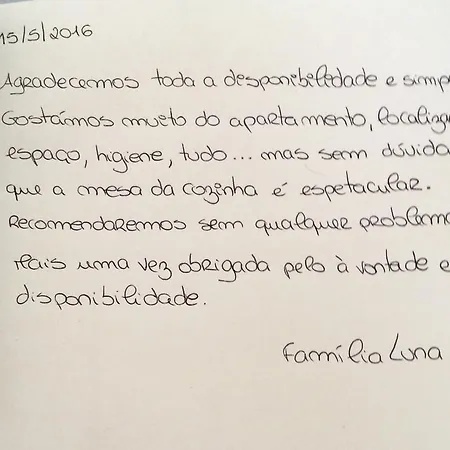 15/5/2016
Agradecemos toda a desponibeledade e simp
Gostámos mueto do apartamento, localiza
espaço, higiene, tudo... mas sem dúvida
que a mesa da cozinha é espetacular.
Recomendaremos sem qualquer problema
Mais uma vez obrigada pelo à vontade e
disponibilidade.
Família Luna